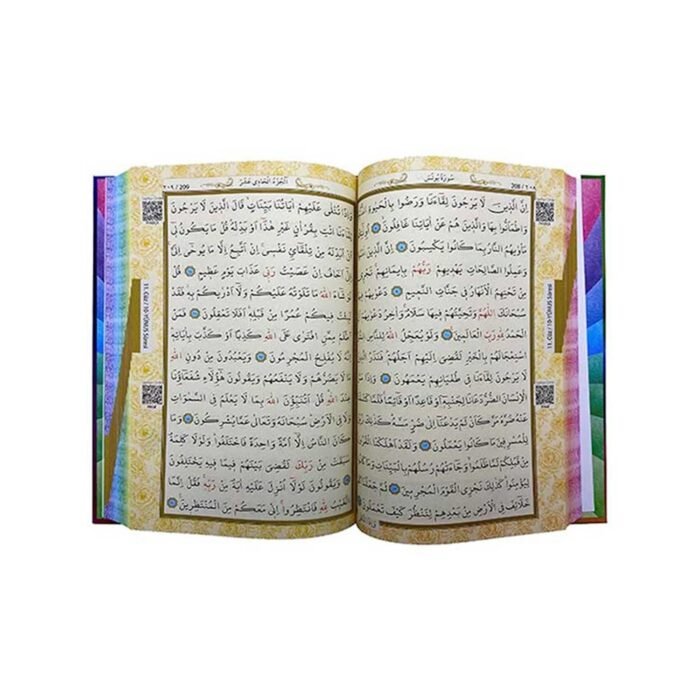 سُورَةُ يُونُسَ
208 / ٢٠٨
اِنَّ الَّذينَ لَا يَرْجُونَ لِقَاءَنَا وَرَضُوا بِالْحَيٰوةِ
وَاطْمَاَنُّوا بِهَا وَالَّذينَ هُمْ عَنْ اٰيَاتِنَا غَافِلُونَ
مَأْوٰيهُمُ النَّارُ بِمَا كَانُوا يَكْسِبُونَ اِنَّ الَّذينَ
وَعَمِلُوا الصَّالِحَاتِ يَهْديهِمْ رَبُّهُمْ بِايمَانِهِمْ تَجْرى
مِنْ تَحْتِهِمُ الْاَنْهَارُ فى جَنَّاتِ النَّعيمِ دَعْوٰيهُمْ
سُبْحَانَكَ اللّٰهُمَّ وَتَحِيَّتُهُمْ فيهَا سَلَامٌ وَاٰخِرُ دَعْوٰيهُمْ
الْحَمْدُ لِلّٰهِ رَبِّ الْعَالَمينَ وَلَوْ يُعَجِّلُ اللّٰهُ
اسْتِعْجَالَهُمْ بِالْخَيْرِ لَقُضِىَ اِلَيْهِمْ اَجَلُهُمْ فَنَذَرُ
لَا يَرْجُونَ لِقَاءَنَا فى طُغْيَانِهِمْ يَعْمَهُونَ وَاِذَا
الْاِنْسَانَ الضُّرُّ دَعَانَا لِجَنْبِه اَوْ قَاعِدًا اَوْ قَائِمًا
عَنْهُ ضُرَّهُ مَرَّ كَاَنْ لَمْ يَدْعُنَا اِلٰى ضُرٍّ مَسَّهُ كَذٰلِكَ
لِلْمُسْرِفينَ مَا كَانُوا يَعْمَلُونَ وَلَقَدْ اَهْلَكْنَا
مِنْ قَبْلِكُمْ لَمَّا ظَلَمُوا وَجَاءَتْهُمْ رُسُلُهُمْ بِالْبَيِّنَاتِ
لِيُؤْمِنُوا كَذٰلِكَ نَجْزِى الْقَوْمَ الْمُجْرِمينَ
خَلَائِفَ فِى الْاَرْضِ مِنْ بَعْدِهِمْ لِنَنْظُرَ كَيْفَ تَعْمَلُونَ
11. Cüz / 10-YÛNUS Sûresi
اَلْجُزْءُ الْحَادى عَشَرَ
٢٠٩ / 209
وَاِذَا تُتْلٰى عَلَيْهِمْ اٰيَاتُنَا بَيِّنَاتٍ قَالَ الَّذينَ لَا يَرْجُونَ
لِقَاءَنَا ائْتِ بِقُرْاٰنٍ غَيْرِ هٰذَا اَوْ بَدِّلْهُ قُلْ مَا يَكُونُ لى
اَنْ اُبَدِّلَهُ مِنْ تِلْقَائِ نَفْسى اِنْ اَتَّبِعُ اِلَّا مَا يُوحٰى اِلَىَّ
اِنّى اَخَافُ اِنْ عَصَيْتُ رَبّى عَذَابَ يَوْمٍ عَظيمٍ قُلْ
لَوْ شَاءَ اللّٰهُ مَا تَلَوْتُهُ عَلَيْكُمْ وَلَا اَدْرٰيكُمْ بِه فَقَدْ
لَبِثْتُ فيكُمْ عُمُرًا مِنْ قَبْلِه اَفَلَا تَعْقِلُونَ فَمَنْ
اَظْلَمُ مِمَّنِ افْتَرٰى عَلَى اللّٰهِ كَذِبًا اَوْ كَذَّبَ بِاٰيَاتِه
اِنَّهُ لَا يُفْلِحُ الْمُجْرِمُونَ وَيَعْبُدُونَ مِنْ دُونِ اللّٰهِ
مَا لَا يَضُرُّهُمْ وَلَا يَنْفَعُهُمْ وَيَقُولُونَ هٰؤُلَاءِ شُفَعَاؤُنَا
عِنْدَ اللّٰهِ قُلْ اَتُنَبِّؤُنَ اللّٰهَ بِمَا لَا يَعْلَمُ فِى السَّمٰوَاتِ
وَلَا فِى الْاَرْضِ سُبْحَانَهُ وَتَعَالٰى عَمَّا يُشْرِكُونَ وَمَا
كَانَ النَّاسُ اِلَّا اُمَّةً وَاحِدَةً فَاخْتَلَفُوا وَلَوْلَا كَلِمَةٌ
سَبَقَتْ مِنْ رَبِّكَ لَقُضِىَ بَيْنَهُمْ فيمَا فيهِ يَخْتَلِفُونَ
وَيَقُولُونَ لَوْلَا اُنْزِلَ عَلَيْهِ اٰيَةٌ مِنْ رَبِّه فَقُلْ اِنَّمَا
الْغَيْبُ لِلّٰهِ فَانْتَظِرُوا اِنّى مَعَكُمْ مِنَ الْمُنْتَظِرينَ
11. Cüz / 10-YÛNUS Sûresi